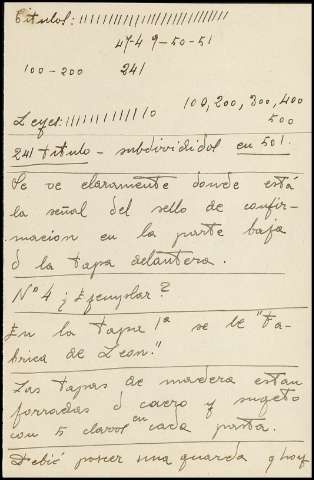 Titulos: ////////////////////
47-4 9-50-51
100-200 241
100, 200, 300, 400
Leyes: ////////// 10 500
241 titulo - subdivididos en 501.
Se ve claramente donde está
la señal del sello de confir-
macion en la parte baja
d la tapa delantera.
Nº 4 ¿ Ejemplar?
En la tapa 1ª se lee "Fa-
brica de Leon."
Las tapas de madera estan
forradas d cuero y sugeto
con 5 clavos en cada pasta.
Debió poseer una guarda y hoy